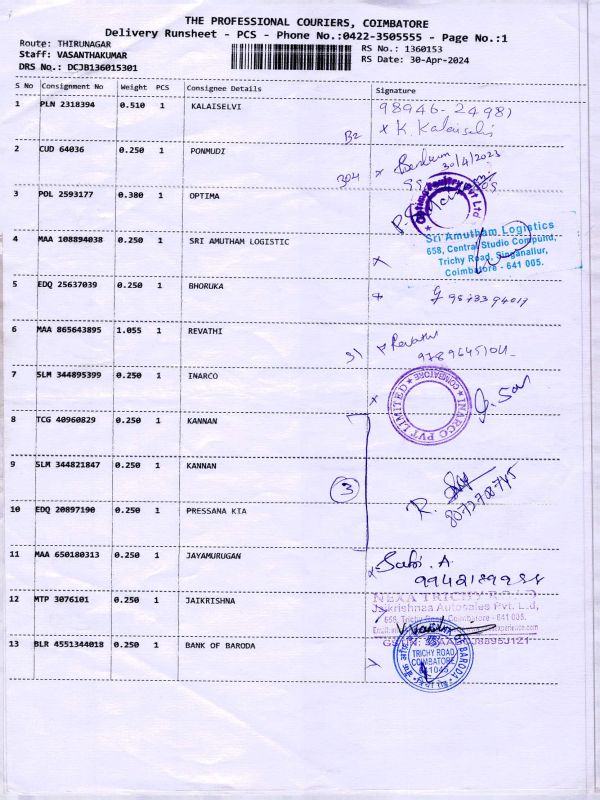 THE PROFESSIONAL COURIERS, COIMBATORE
Delivery Runsheet - PCS - Phone No.:0422-3505555 - Page No.:1
Route: THIRUNAGAR
Staff: VASANTHAKUMAR
DRS No.: DCJB136015301
RS No.: 1360153
RS Date: 30-Apr-2024
S No Consignment No Weight PCS Consignee Details Signature
1 PLN 2318394 0.510 1 KALAISELVI
98946-24981
x K. Kalaiselvi
B2
2 CUD 64036 0.250 1 PONMUDI
304 x
30/4/2023
3 POL 2593177 0.380 1 OPTIMA
Pvt Ltd
4 MAA 108894038 0.250 1 SRI AMUTHAM LOGISTIC
Sri Amutham Logistics
658, Central Studio Compund,
Trichy Road, Singanallur,
Coimbatore - 641 005.
x
5 EDQ 25637039 0.250 1 BHORUKA
6 MAA 865643895 1.055 1 REVATHI
Revathi
7 SLM 344895399 0.250 1 INARCO
x
INARCO PVT LIMITED
COIMBATORE
8 TCG 40960829 0.250 1 KANNAN
9 SLM 344821847 0.250 1 KANNAN
3
R.
8073708745
10 EDQ 20897190 0.250 1 PRESSANA KIA
11 MAA 650180313 0.250 1 JAYAMURUGAN
x Sabi. A
12 MTP 3076101 0.250 1 JAIKRISHNA
NEXA TRICHY ROAD
Jaikrishnaa Autosales Pvt. L.d,
658, Trichy Road, Coimbatore - 641 005.
13 BLR 4551344018 0.250 1 BANK OF BARODA
OF BARODA
TRICHY ROAD
COIMBATORE